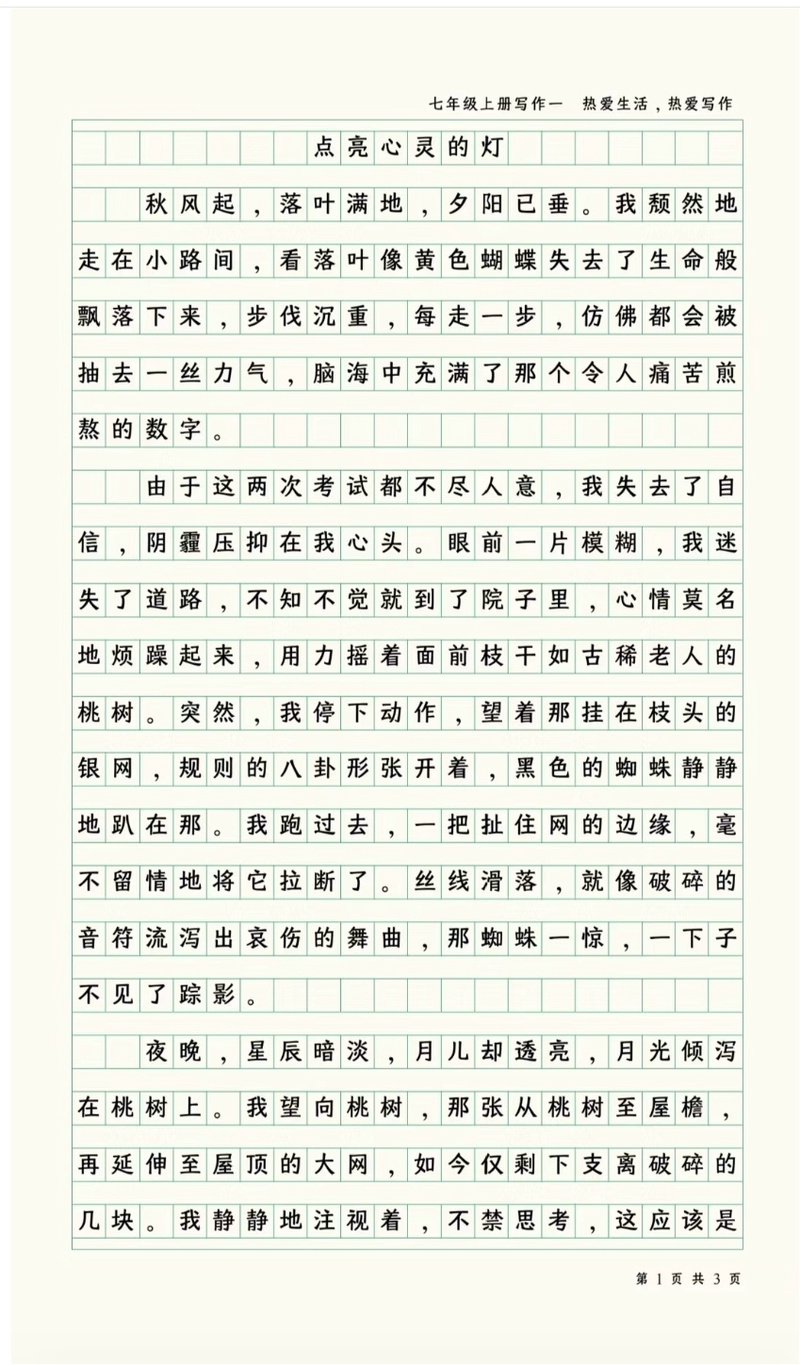 七年级上册写作一　热爱生活，热爱写作
点亮心灵的灯
秋风起，落叶满地，夕阳已垂。我颓然地
走在小路间，看落叶像黄色蝴蝶失去了生命般
飘落下来，步伐沉重，每走一步，仿佛都会被
抽去一丝力气，脑海中充满了那个令人痛苦煎
熬的数字。
由于这两次考试都不尽人意，我失去了自
信，阴霾压抑在我心头。眼前一片模糊，我迷
失了道路，不知不觉就到了院子里，心情莫名
地烦躁起来，用力摇着面前枝干如古稀老人的
桃树。突然，我停下动作，望着那挂在枝头的
银网，规则的八卦形张开着，黑色的蜘蛛静静
地趴在那。我跑过去，一把扯住网的边缘，毫
不留情地将它拉断了。丝线滑落，就像破碎的
音符流泻出哀伤的舞曲，那蜘蛛一惊，一下子
不见了踪影。
夜晚，星辰暗淡，月儿却透亮，月光倾泻
在桃树上。我望向桃树，那张从桃树至屋檐，
再延伸至屋顶的大网，如今仅剩下支离破碎的
几块。我静静地注视着，不禁思考，这应该是
第 1 页 共 3 页